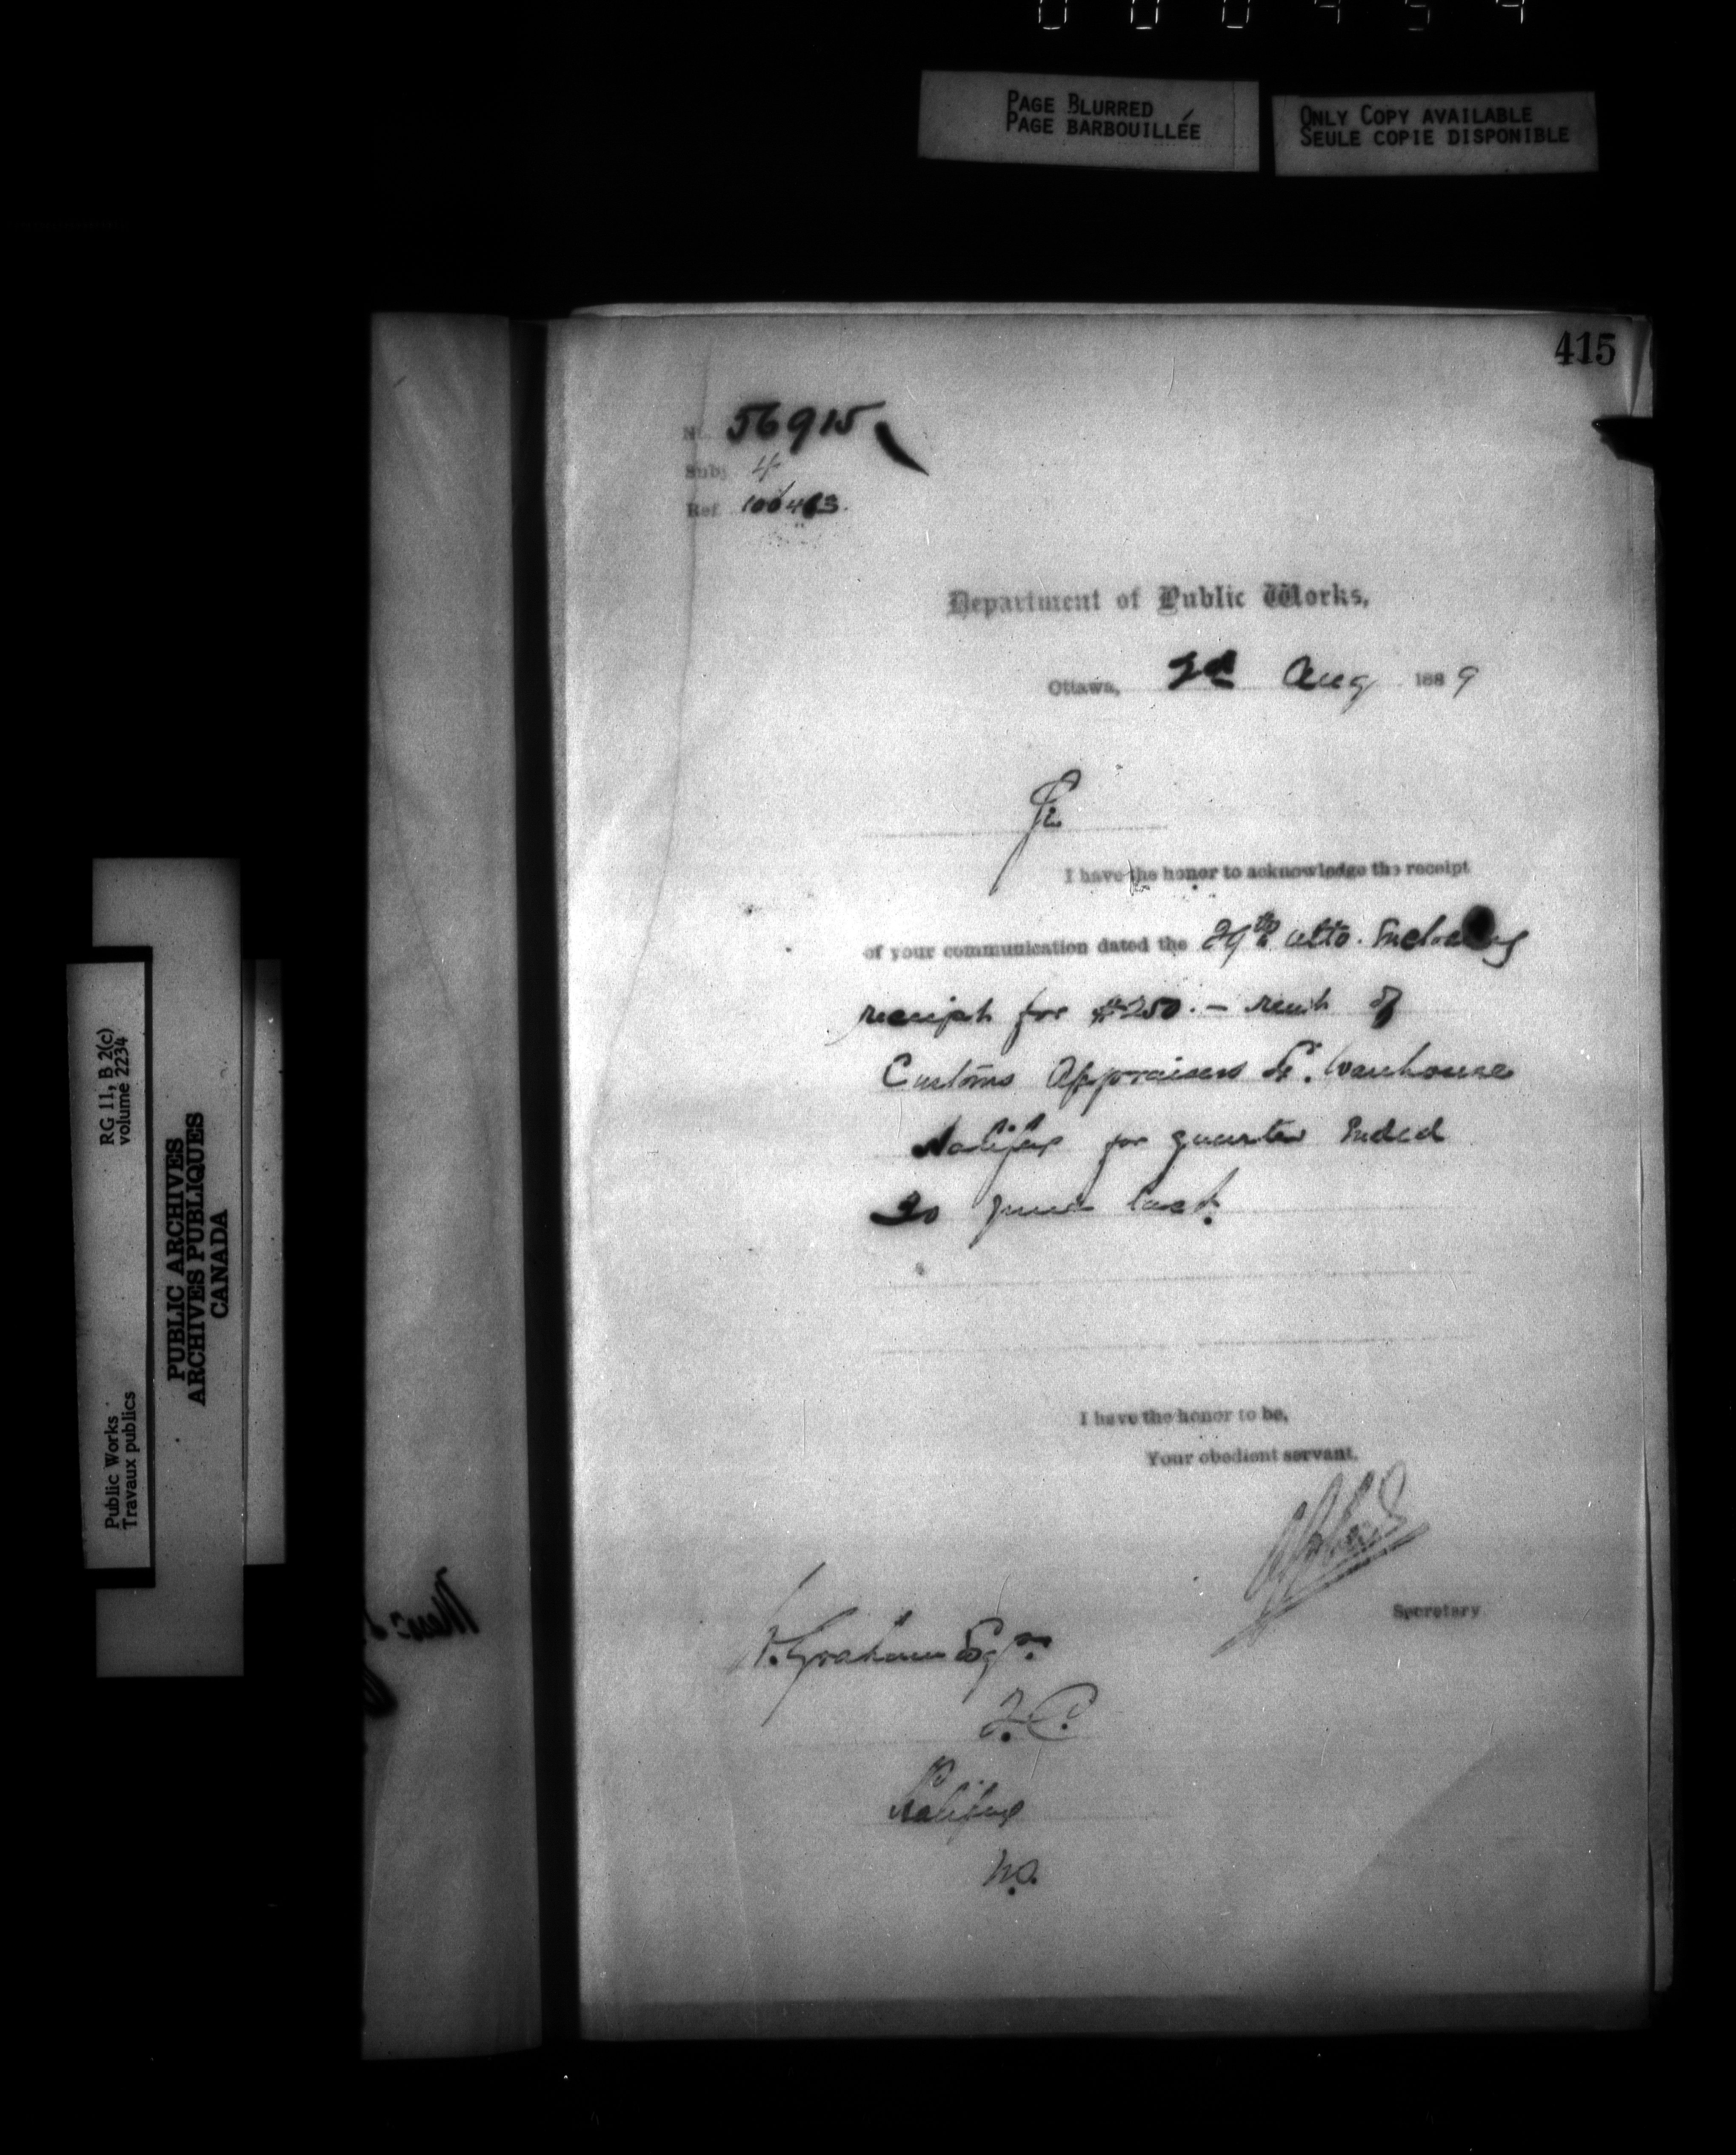 PAGE BLURRED
PAGE BARBOUILLÉE
ONLY COPY AVAILABLE
SEULE COPIE DISPONIBLE
415
No. 56915
Subj. 4
Ref.
Department of Public Works,
Ottawa, 2d Aug 1889
Sir
I have the honor to acknowledge the receipt
of your communication dated the 29th ulto. Enclosing
receipt for $250.— rent of
Customs Appraisers &c. Warehouse
Halifax for quarter Ended
30 June last.
I have the honor to be,
Your obedient servant,
Secretary
Graham Esqr.
Halifax
N.S.
RG 11, B 2(c)
volume 2234
Public Works
Travaux publics
PUBLIC ARCHIVES
ARCHIVES PUBLIQUES
CANADA